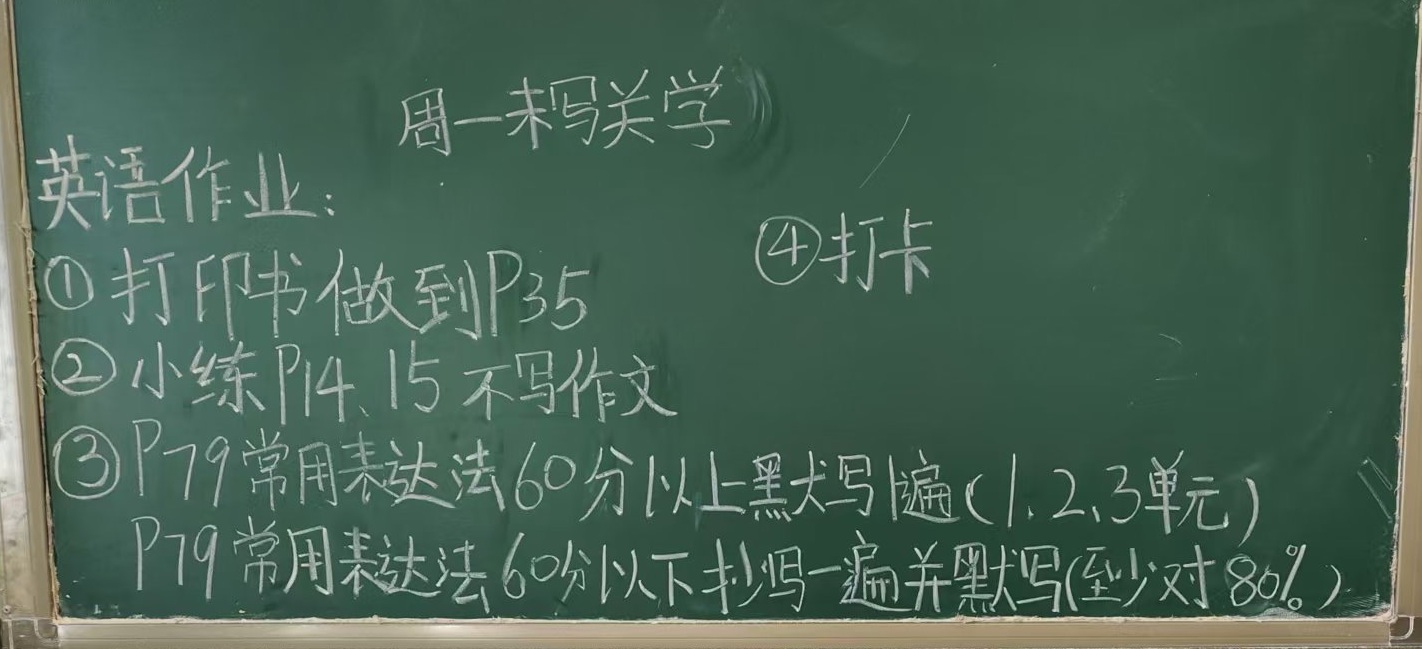 周一未写关学
英语作业:
①打印书做到P35
②小练P14、15 不写作文
③P79常用表达法60分以上默写1遍(1、2、3单元)
P79常用表达法60分以下抄写一遍并默写(至少对80%)
④打卡